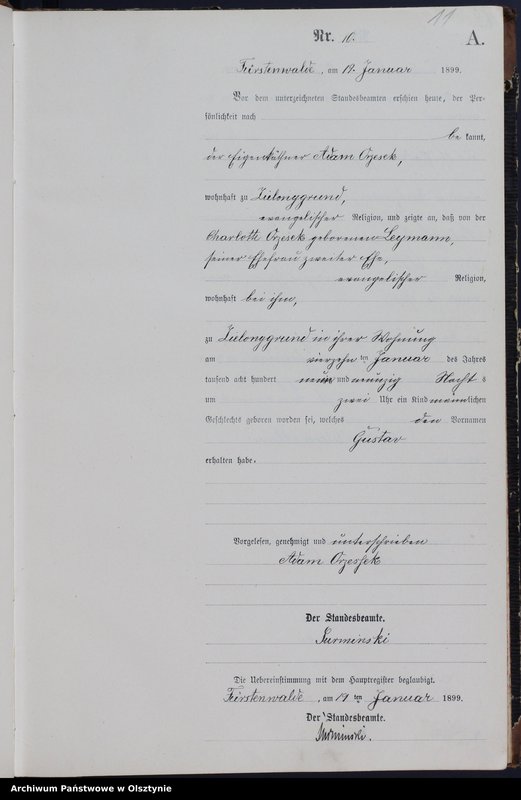 11
Nr. 10.
A.
Fürstenwalde, am 19. Januar 1899.
Vor dem unterzeichneten Standesbeamten erschien heute, der Per-
sönlichkeit nach
bekannt,
der Eigenkäthner Adam Orzesek,
wohnhaft zu Zielonygrund,
evangelischer Religion, und zeigte an, daß von der
Charlotte Orzesek geborenen Leymann,
seiner Ehefrau zweiter Ehe,
evangelischer Religion,
wohnhaft bei ihm,
zu Zielonygrund in ihrer Wohnung
am vierzehn ten Januar des Jahres
tausend acht hundert neun und neunzig Nacht s
um zwei Uhr ein Kind männlichen
Geschlechts geboren worden sei, welches den Vornamen
Gustav
erhalten habe.
Vorgelesen, genehmigt und unterschrieben
Adam Orzessek
Der Standesbeamte.
Surminski
Die Uebereinstimmung mit dem Hauptregister beglaubigt.
Fürstenwalde, am 19 ten Januar 1899.
Der Standesbeamte.
Surminski.
Archiwum Państwowe w Olsztynie